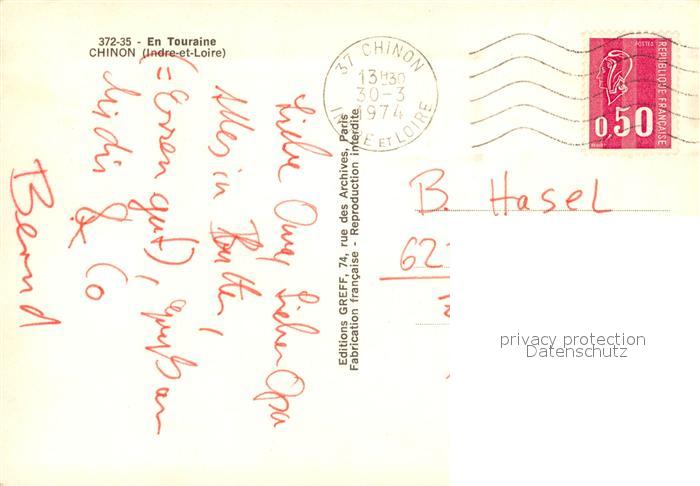 372-35 - En Touraine
CHINON (Indre-et-Loire)
Liebe Oma, Lieber Opa
Alles in Butter,
(= Essen gut), Gruß an
& Co
Bernd
Editions GREFF, 74, rue des Archives, Paris
Fabrication française - Reproduction interdite
37 CHINON
13H30
30-3
1974
INDRE ET LOIRE
POSTES
REPUBLIQUE FRANÇAISE
0,50
B. Hasel
62
privacy protection
Datenschutz